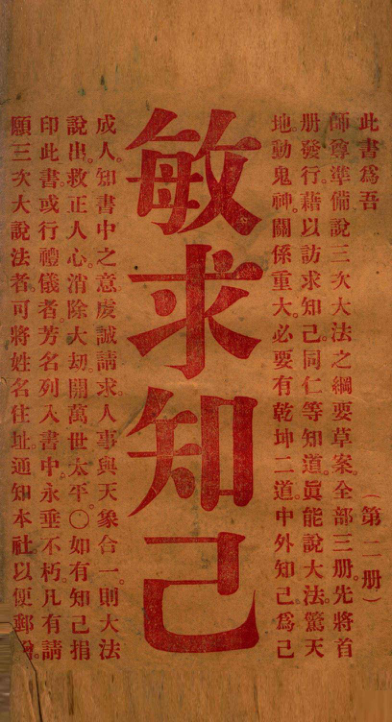 此書爲吾（第二册）
師尊準備說三次大法之綱要草案。全部三册。先將首
册發行。藉以訪求知己。同仁等知道。眞能說大法。驚天
地動鬼神。關係重大。必要有乾坤二道。中外知己。爲己
敏求知己
成人。知書中之意。虔誠請求。人事與天象合一。則大法
說出。救正人心。消除大劫。開萬世太平。〇如有知己捐
印此書。或行禮儀者。芳名列入書中。永垂不朽。凡有請
願三次大說法者。可將姓名住址。通知本社。以便郵